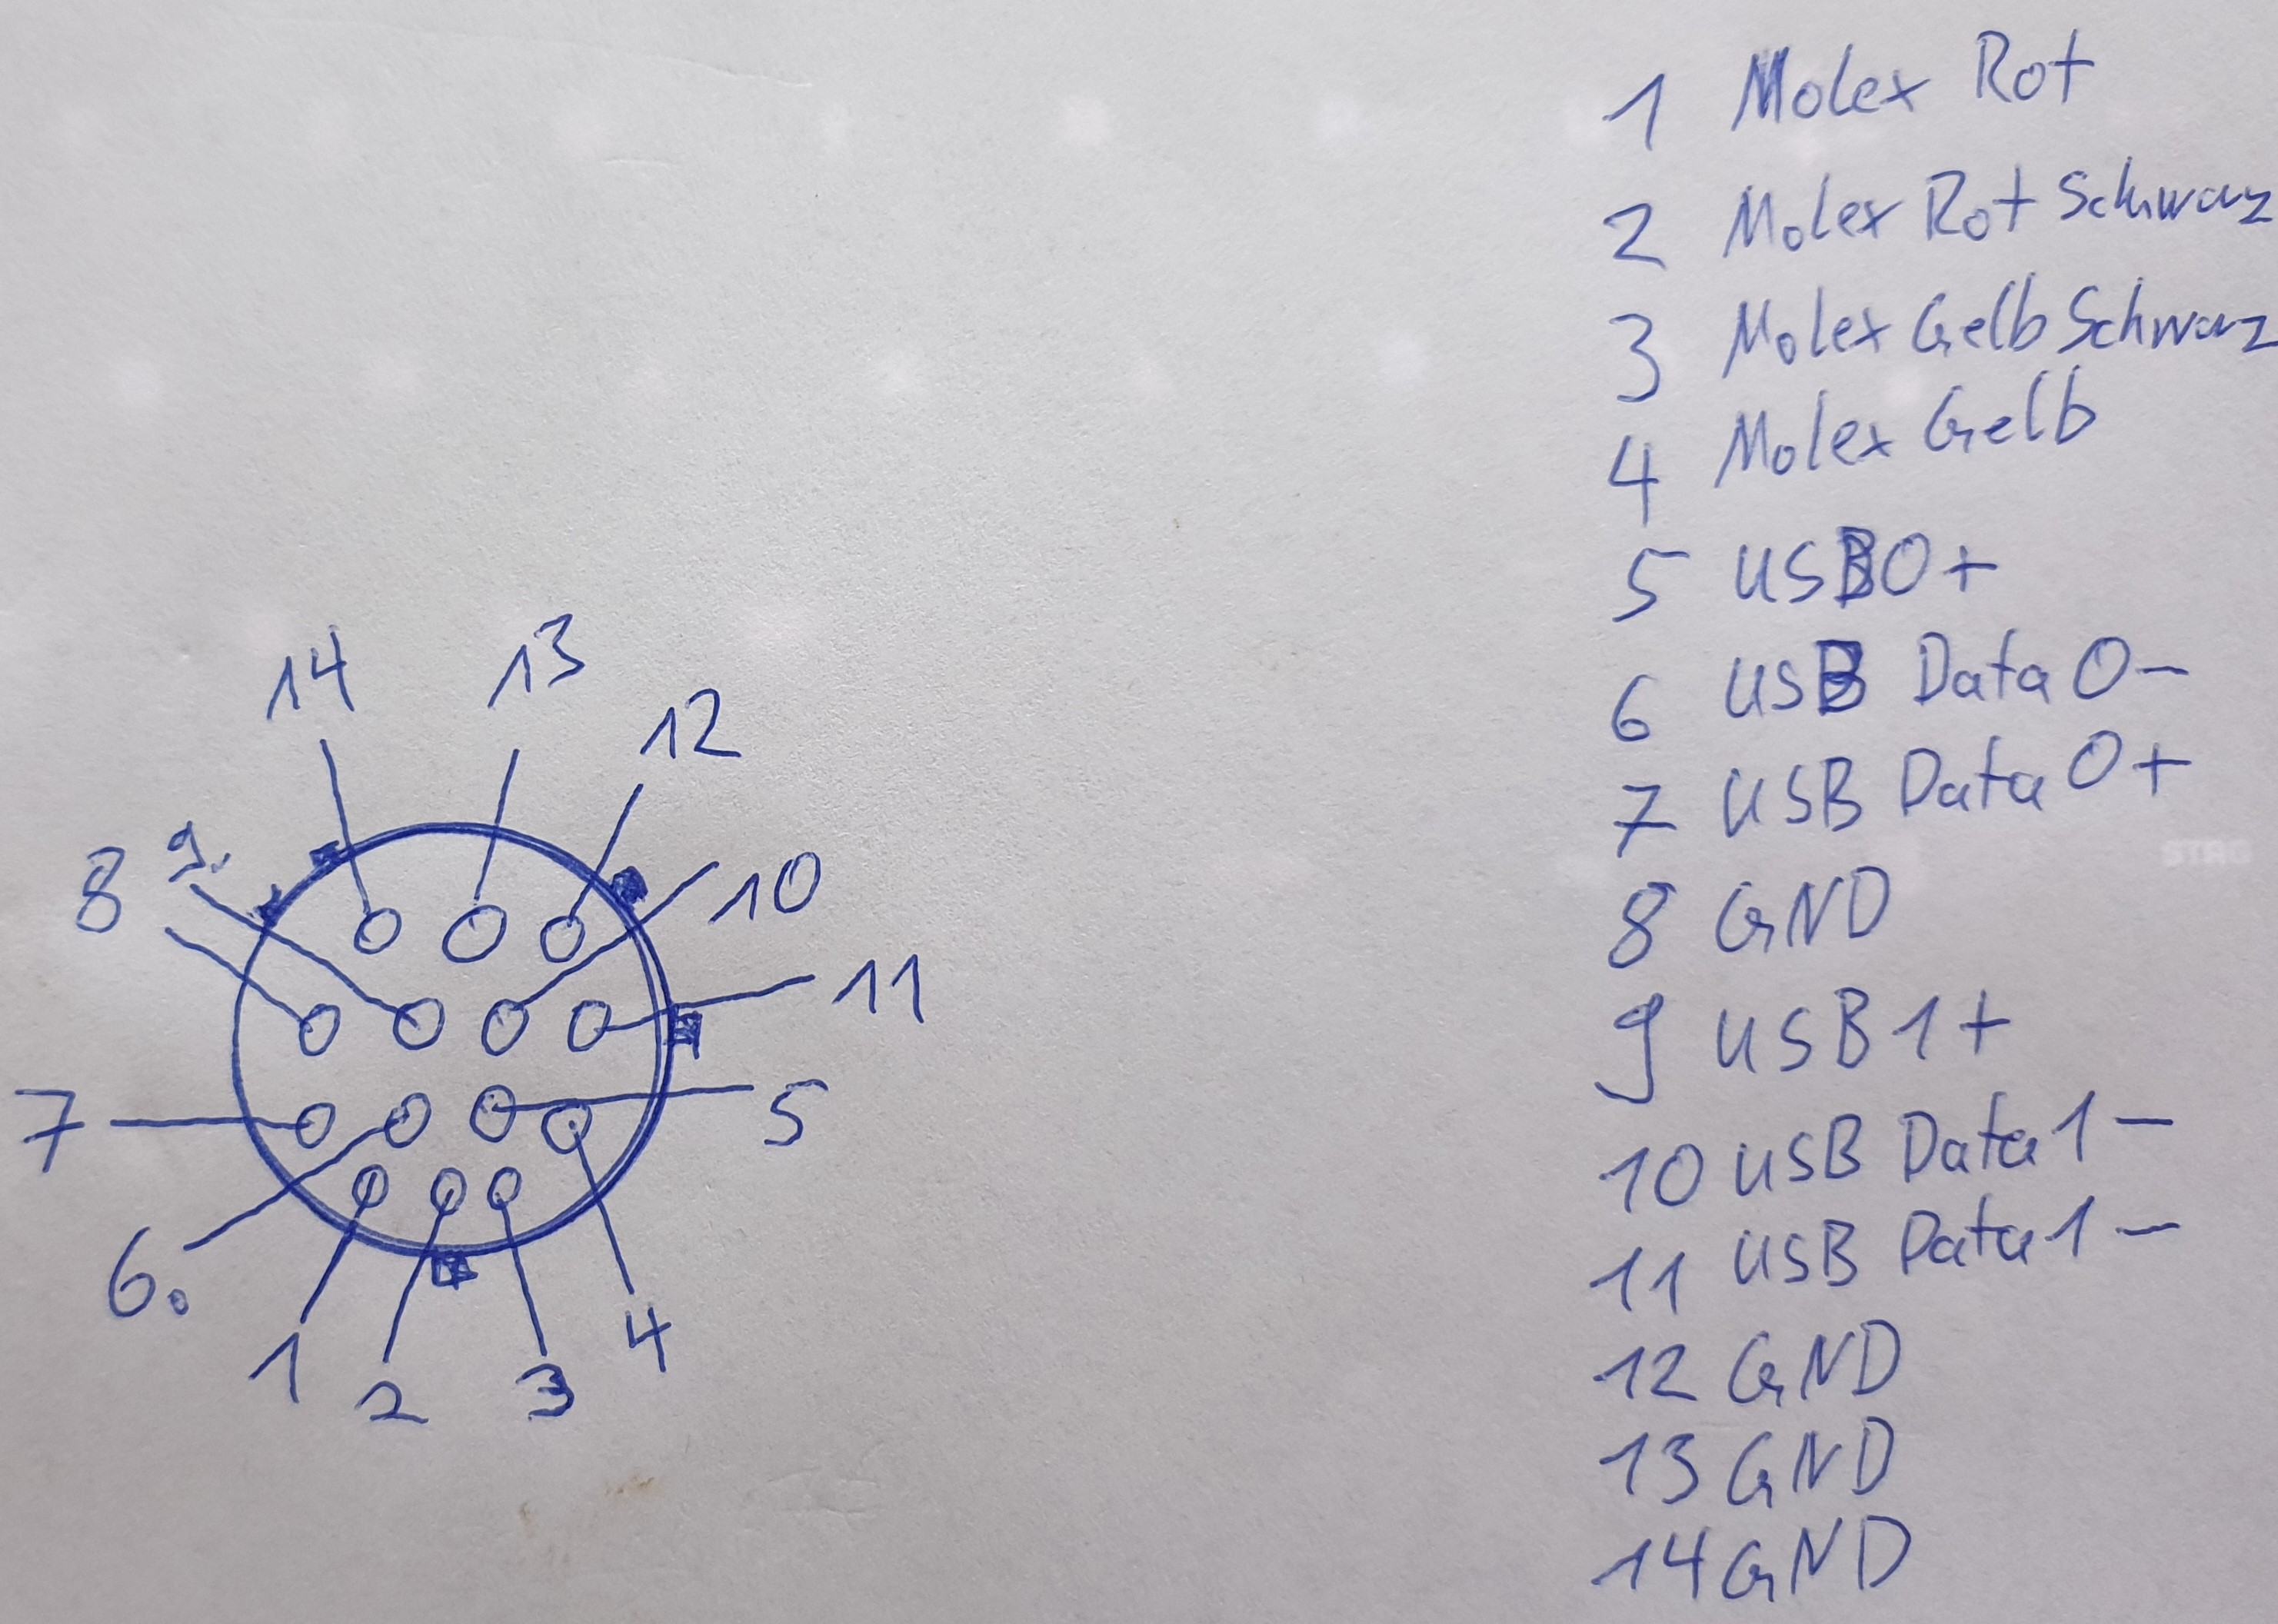 1 Molex Rot
2 Molex Rot Schwarz
3 Molex Gelb Schwarz
4 Molex Gelb
5 USB0+
6 USB Data 0-
7 USB Data 0+
8 GND
9 USB 1+
10 USB Data 1-
11 USB Data 1-
12 GND
13 GND
14 GND
14 13
12
8 9. 10
11
7 5
6.
1 2 3 4
STAG